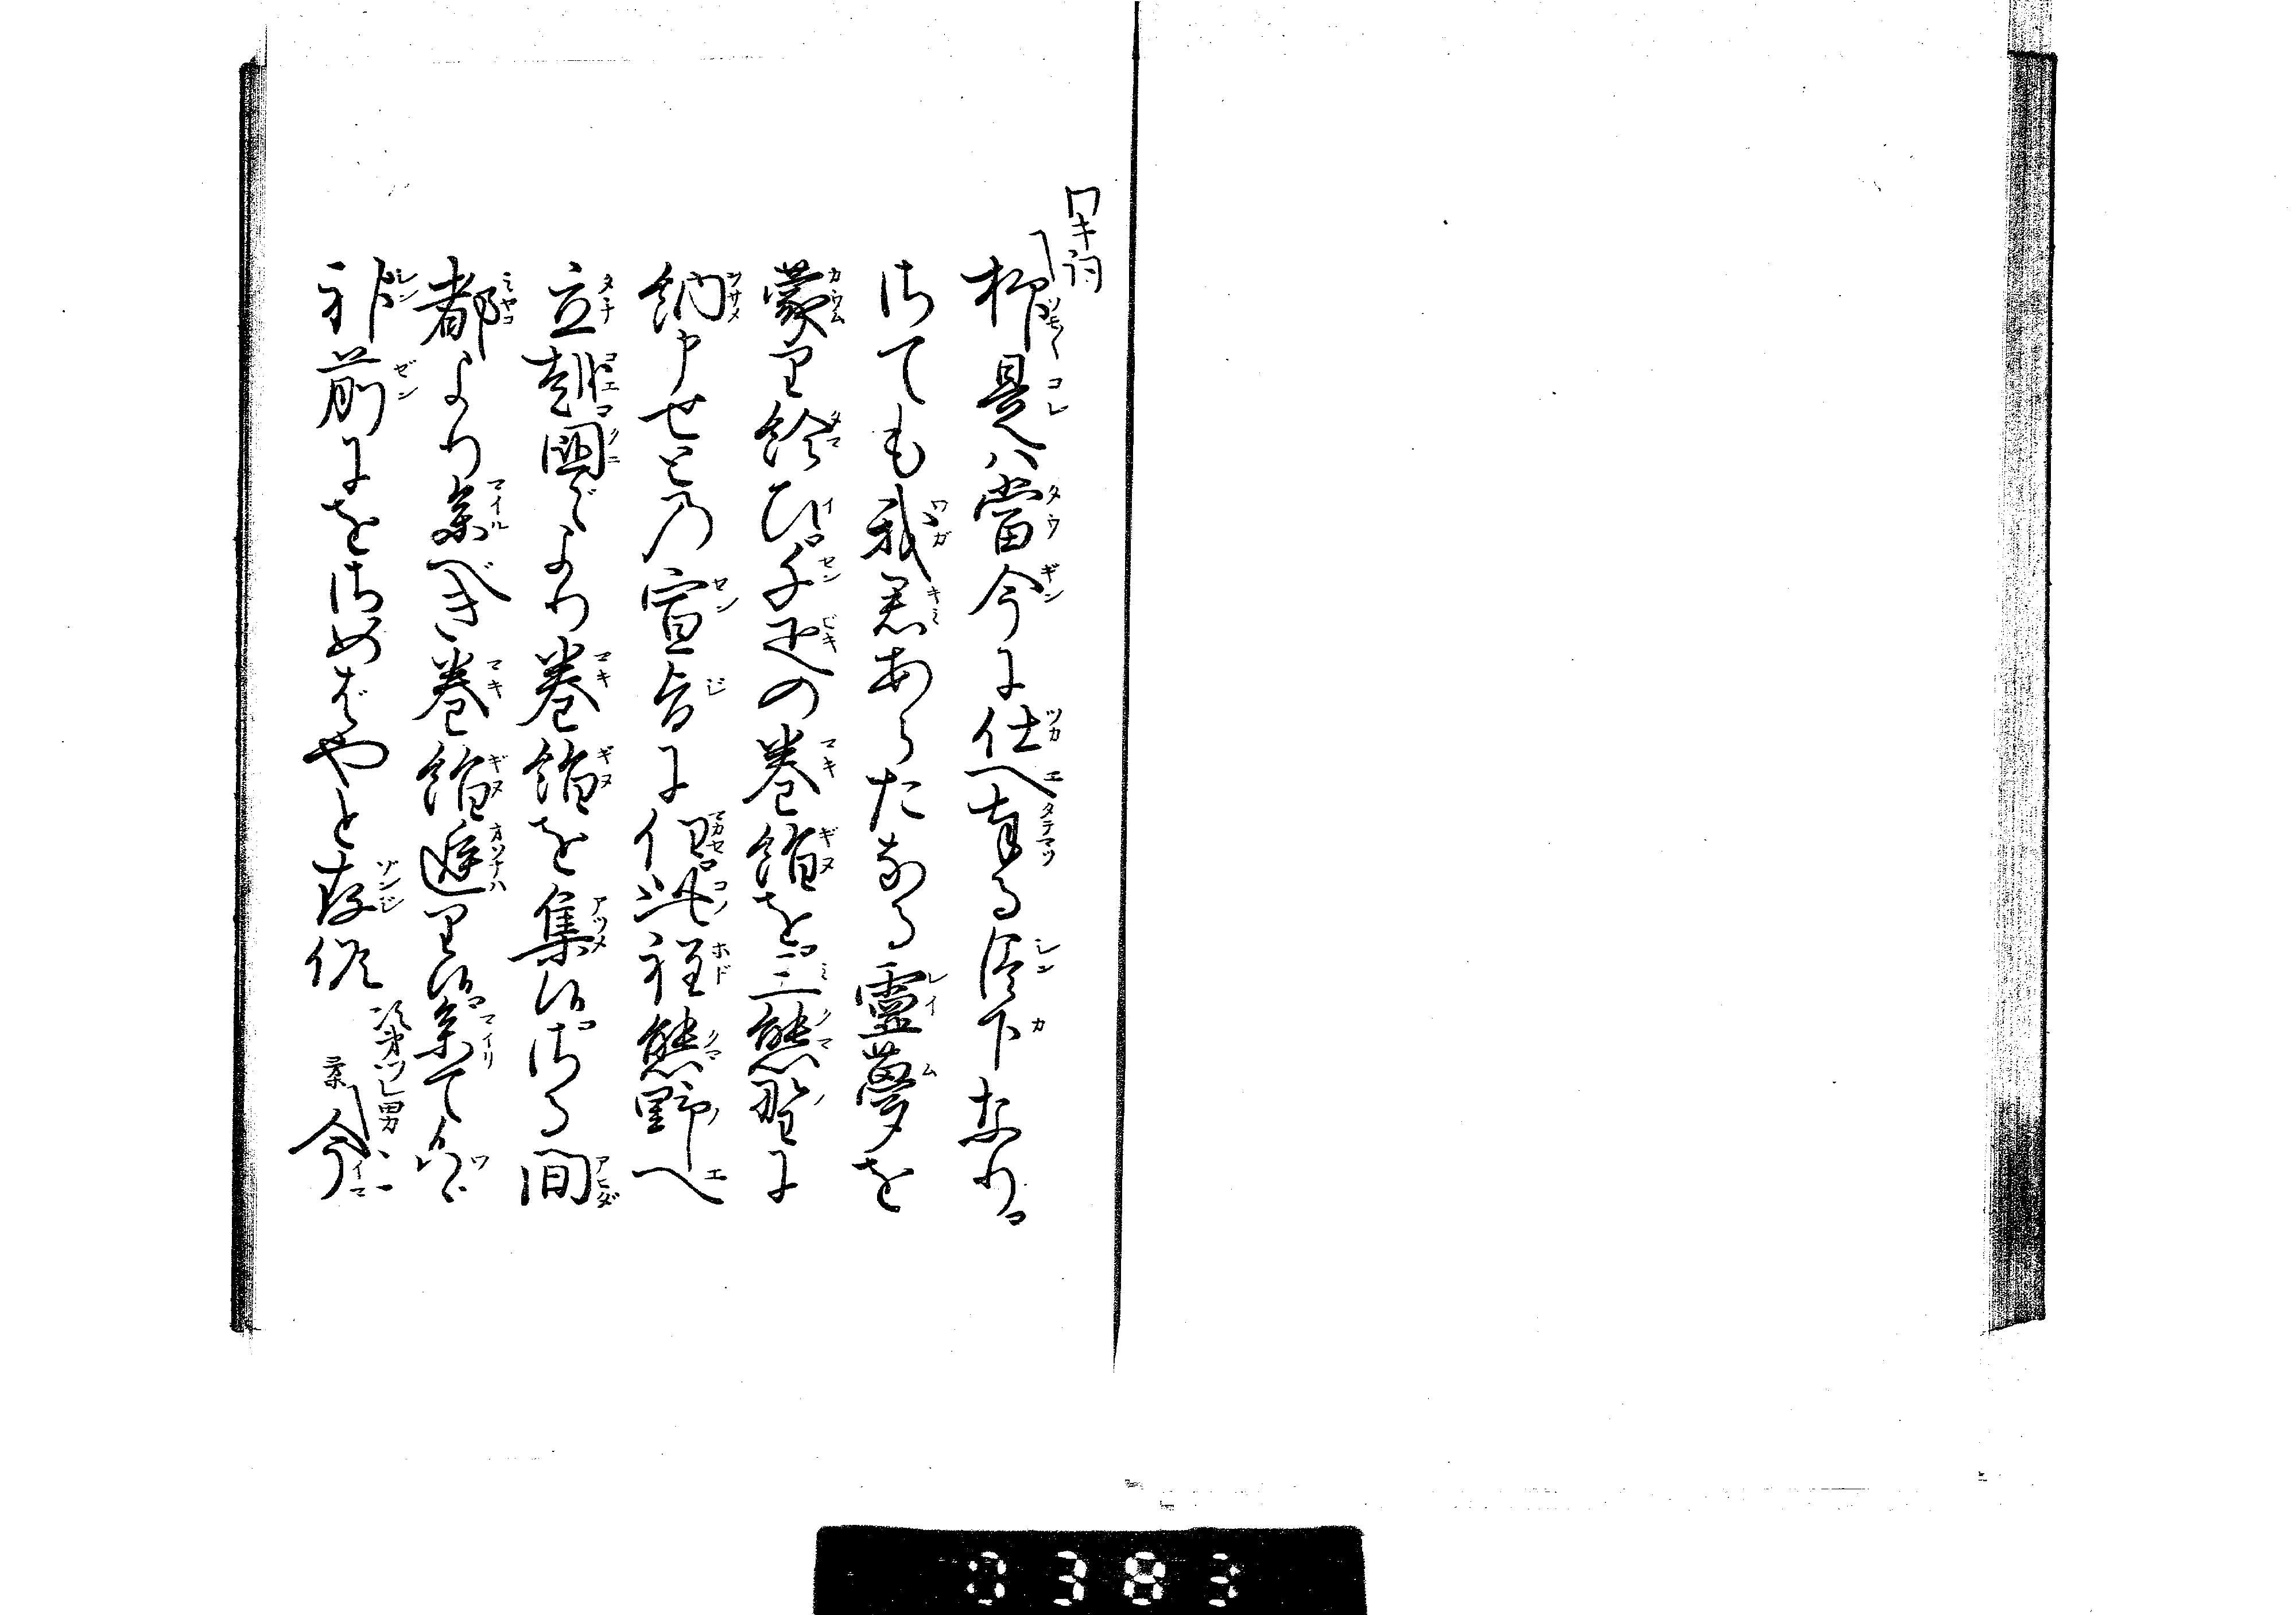 ワキ詞
抑是ハ當今に仕へ奉る臣下なり
さても我君あらたなる靈夢を
蒙り給ひ千疋の巻絹を三熊野に
納申せとの宣旨に任此程熊野へ
立越國〴〵より巻絹を集候さる間
都より参べき巻絹遅り候参て候ハヾ
神前にをさめばやと存候
次第ツレ男
今
0383